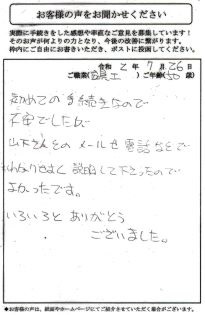 お客様の声をお聞かせください
実際に手続きをした感想や率直なご意見を募集しています！
そのお声が何よりの力となり、今後の改善に繋がります。
枠内にご自由にお書きいただき、ポストに投函してください。
令和 2 年 7 月 26 日
ご職業( 員工 ) ご年齢( 50 歳)
初めての手続きなので
不安でしたが
山下さんとのメールや電話などで
わかりやすく説明して下さったので
よかったです。
いろいろとありがとう
ございました。
◆お客様の声は、紙面やホームページにてご紹介させていただく場合がございます。